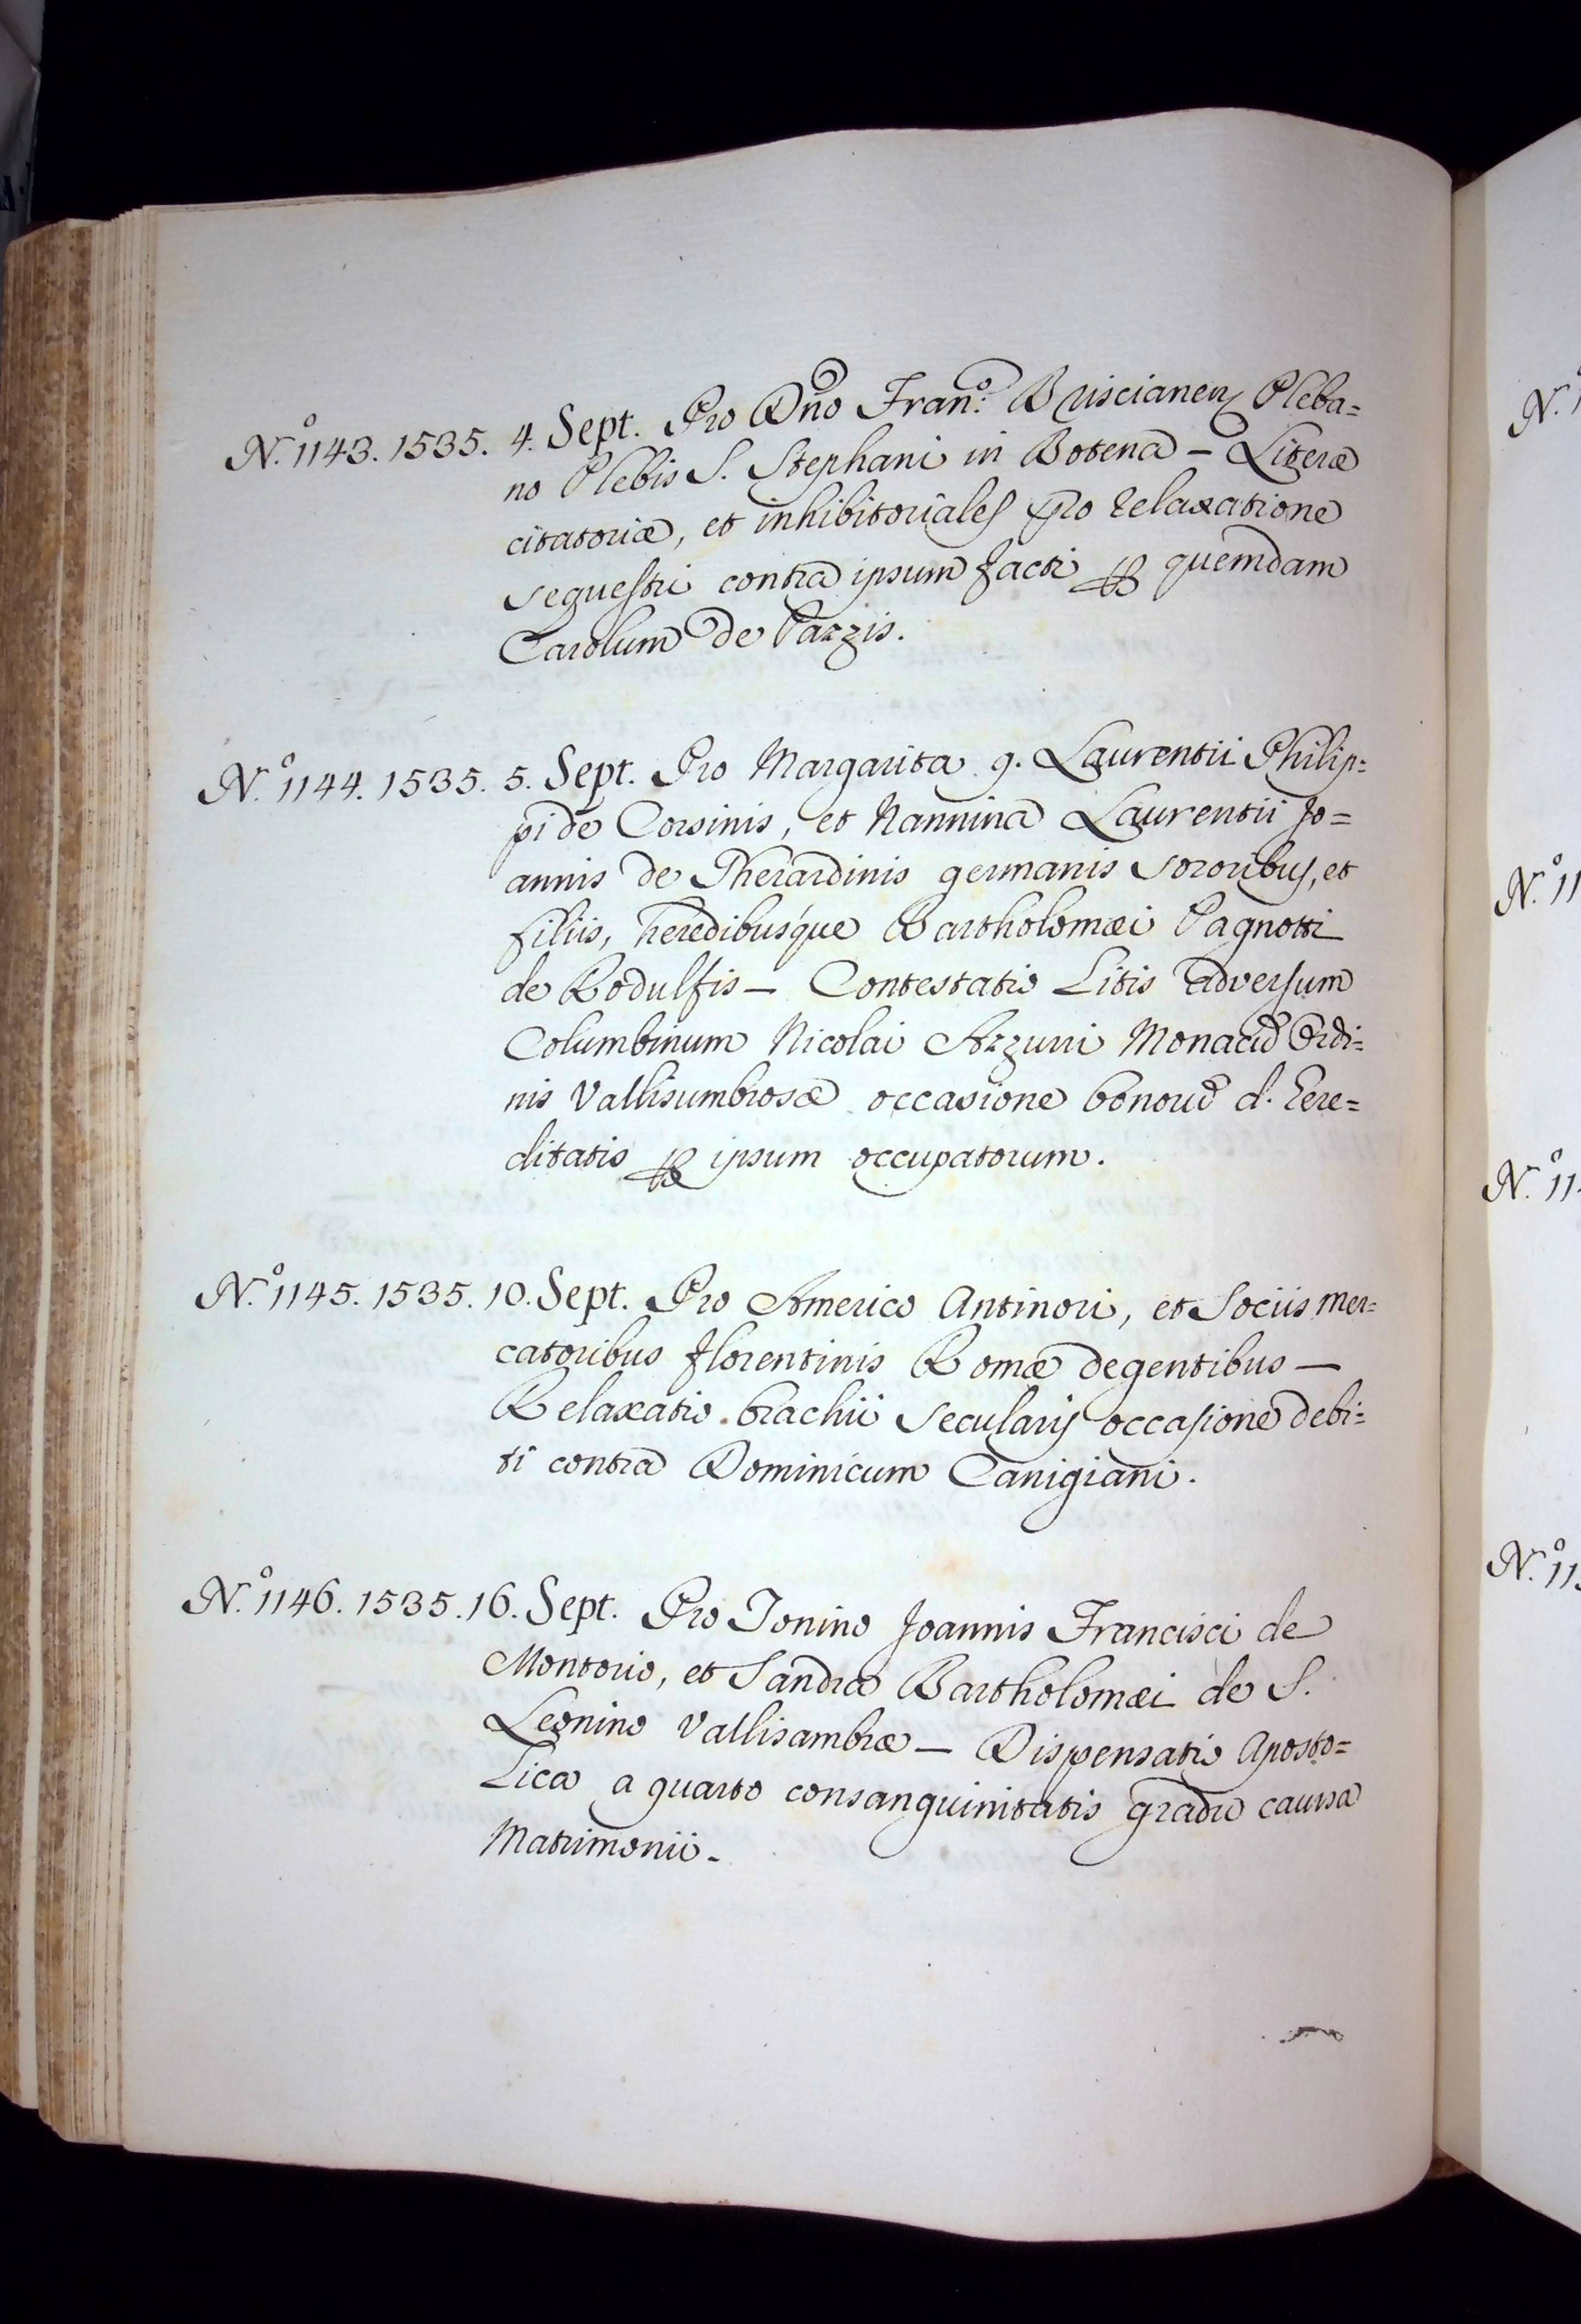 N.º 1143. 1535. 4. Sept. Pro Dño Franº: Priscianen Pleba=
no Plebis S. Stephani in Botena – Literæ
citatoriæ, et inhibitoriales pro relaxatione
sequestri contra ipsum facti ꝑ quemdam
Carolum de Pazzis.
N.º 1144. 1535. 5. Sept. Pro Margarita q. Laurentii Philip=
pi de Corsinis, et Nannina Laurentii Jo=
annis de Gherardinis germanis sororibus, et
filiis, heredibusque Bartholomæi Pagnotti
de Rodulfis – Contestatio Litis adversum
Columbinum Nicolai Azzurri Monacũ Ordi=
nis Vallisumbrosæ occasione bonorũ d. here=
ditatis ꝑ ipsum occupatorum.
N.º 1145. 1535. 10. Sept. Pro Americo Antinori, et Sociis mer=
catoribus florentinis Romæ degentibus –
Relaxatio brachii secularis occasione debi=
ti contra Dominicum Canigiani.
N.º 1146. 1535. 16. Sept. Pro Tonino Joannis Francisci de
Montorio, et Sandra Bartholomæi de S.
Leonino Vallisambræ – Dispensatio Aposto=
lica a quarto consanguinitatis gradu causa
Matrimonii.
N.º 1
N.º 11
N.º 11
N.º 11